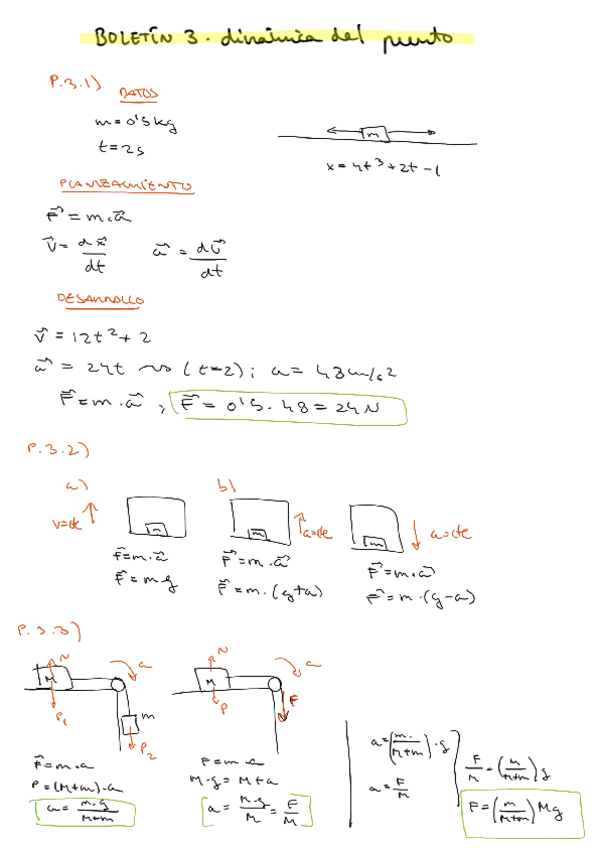 BOLETÍN 3. dinámica del punto
P.3.1)
DATOS
m = 0'5 kg
t = 2s
m
x = 4t³ + 2t - 1
PLANTEAMIENTO
F⃗ = m · a⃗
v⃗ = dx⃗/dt   a⃗ = dv⃗/dt
DESARROLLO
v⃗ = 12t² + 2
a⃗ = 24t ~> (t=2); a = 48 m/s²
F⃗ = m · a⃗, F⃗ = 0'5 · 48 = 24 N
P.3.2)
a) b)
v=cte m m a=cte m a=cte
F⃗ = m · a⃗ F⃗ = m · a⃗ F⃗ = m · a⃗
F⃗ = m · g F⃗ = m · (g+a) F⃗ = m · (g-a)
P.3.3)
N a N a
M M F
P₁ m P
P₂
F⃗ = m · a
P = (M+m) · a
a = m·g/M+m
F = m · a
M · g = M + a
a = M·g/M = F/M
a = (m·/M+m) · g
a = F/M
F/M = (m/M+m) g
F = (m/M+m) Mg